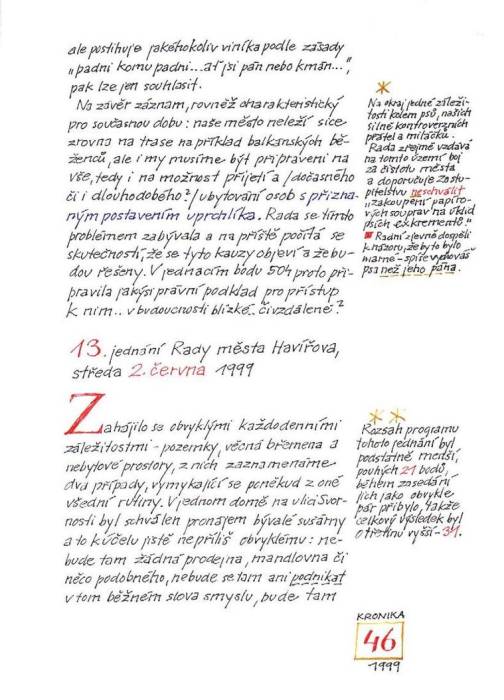 ale postihuje jakéhokoliv viníka podle zásady
„padni komu padni...ať jsi pán nebo kmán...",
pak lze jen souhlasit.
Na závěr záznam, rovněž charakteristický
pro současnou dobu: naše město neleží sice
zrovna na trase na příklad balkánských bě-
ženců, ale i my musíme být připraveni na
vše, tedy i na možnost přijetí a /dočasného
či i dlouhodobého?/ ubytování osob s přizna-
ným postavením uprchlíka. Rada se tímto
problémem zabývala a na příště počítá se
skutečností, že se tyto kauzy objeví a že bu-
dou řešeny. V jednacím bodu 504 proto při-
pravila jakýsi právní podklad pro přístup
k nim.. v budoucnosti blízké.. či vzdálené?
*
Na okraj jedné záleži-
tosti kolem psů, našich
silně kontroverzních
přátel a miláčků.
Rada zřejmě vzdává
na tomto území boj
za čistotu města
a doporučuje Zastu-
pitelstvu neschválit
„zakoupení papíro-
vých souprav na úklid
psích exkrementů."
Radní zjevně dospěli
k názoru, že by to bylo
marné - spíše vychováš
psa než jeho pána.
13. jednání Rady města Havířova,
středa 2. června 1999
Zahájilo se obvyklými každodenními
záležitostmi - pozemky, věcná břemena a
nebytové prostory, z nich zaznamenáme
dva případy, vymykající se poněkud z oné
všední rutiny. V jednom domě na ulici Svor-
nosti byl schválen pronájem bývalé sušárny
a to k účelu jistě ne příliš obvyklému: ne-
bude tam žádná prodejna, mandlovna či
něco podobného, nebude se tam ani podnikat
v tom běžném slova smyslu, bude tam
* *
Rozsah programu
tohoto jednání byl
podstatně menší,
pouhých 21 bodů,
během zasedání
jich jako obvykle
pár přibylo, takže
celkový výsledek byl
o třetinu vyšší - 31.
KRONIKA
46
1999